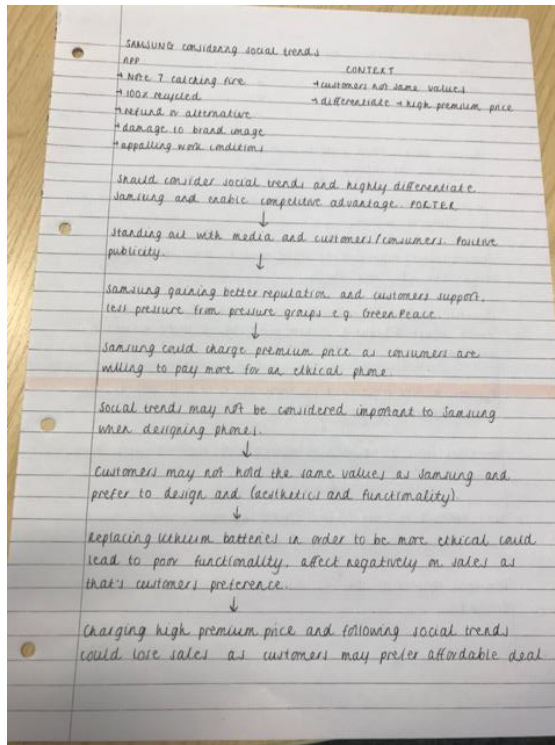 SAMSUNG considering social trends
APP
CONTEXT
→ Note 7 catching fire
→ customers not same values
→ 100% recycled
→ differentiate → high premium price
→ refund or alternative
→ damage to brand image
→ appalling work conditions
Should consider social trends and highly differentiate
Samsung and enable competitive advantage. PORTER
↓
Standing out with media and customers/consumers. Positive
publicity.
↓
Samsung gaining better reputation and customers support.
less pressure from pressure groups e.g. GreenPeace.
↓
Samsung could charge premium price as consumers are
willing to pay more for an ethical phone.
Social trends may not be considered important to Samsung
when designing phones.
↓
Customers may not hold the same values as Samsung and
prefer to design and (aesthetics and functionality)
↓
Replacing lithium batteries in order to be more ethical could
lead to poor functionality. affect negatively on sales as
that's customers preference.
↓
Charging high premium price and following social trends
could lose sales as customers may prefer affordable deal